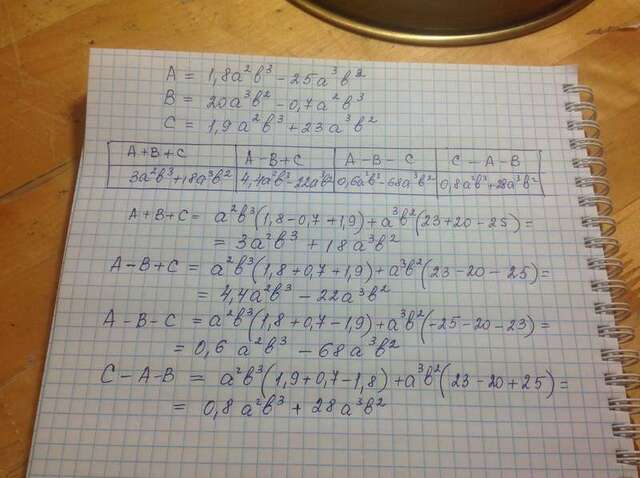 A = 1,8a²b³ - 25a³b²
B = 20a³b² - 0,7a²b³
C = 1,9a²b³ + 23a³b²
A+B+C A-B+C A-B-C C-A-B
3a²b³+18a³b² 4,4a²b³-22a³b² 0,6a²b³-68a³b² 0,8a²b³+28a³b²
A+B+C = a²b³(1,8-0,7+1,9)+a³b²(23+20-25)=
= 3a²b³ + 18a³b²
A-B+C = a²b³(1,8+0,7+1,9)+a³b²(23-20-25)=
= 4,4a²b³ - 22a³b²
A-B-C = a²b³(1,8+0,7-1,9)+a³b²(-25-20-23)=
= 0,6 a²b³ - 68a³b²
C-A-B = a²b³(1,9+0,7-1,8)+a³b²(23-20+25)=
= 0,8a²b³ + 28a³b²